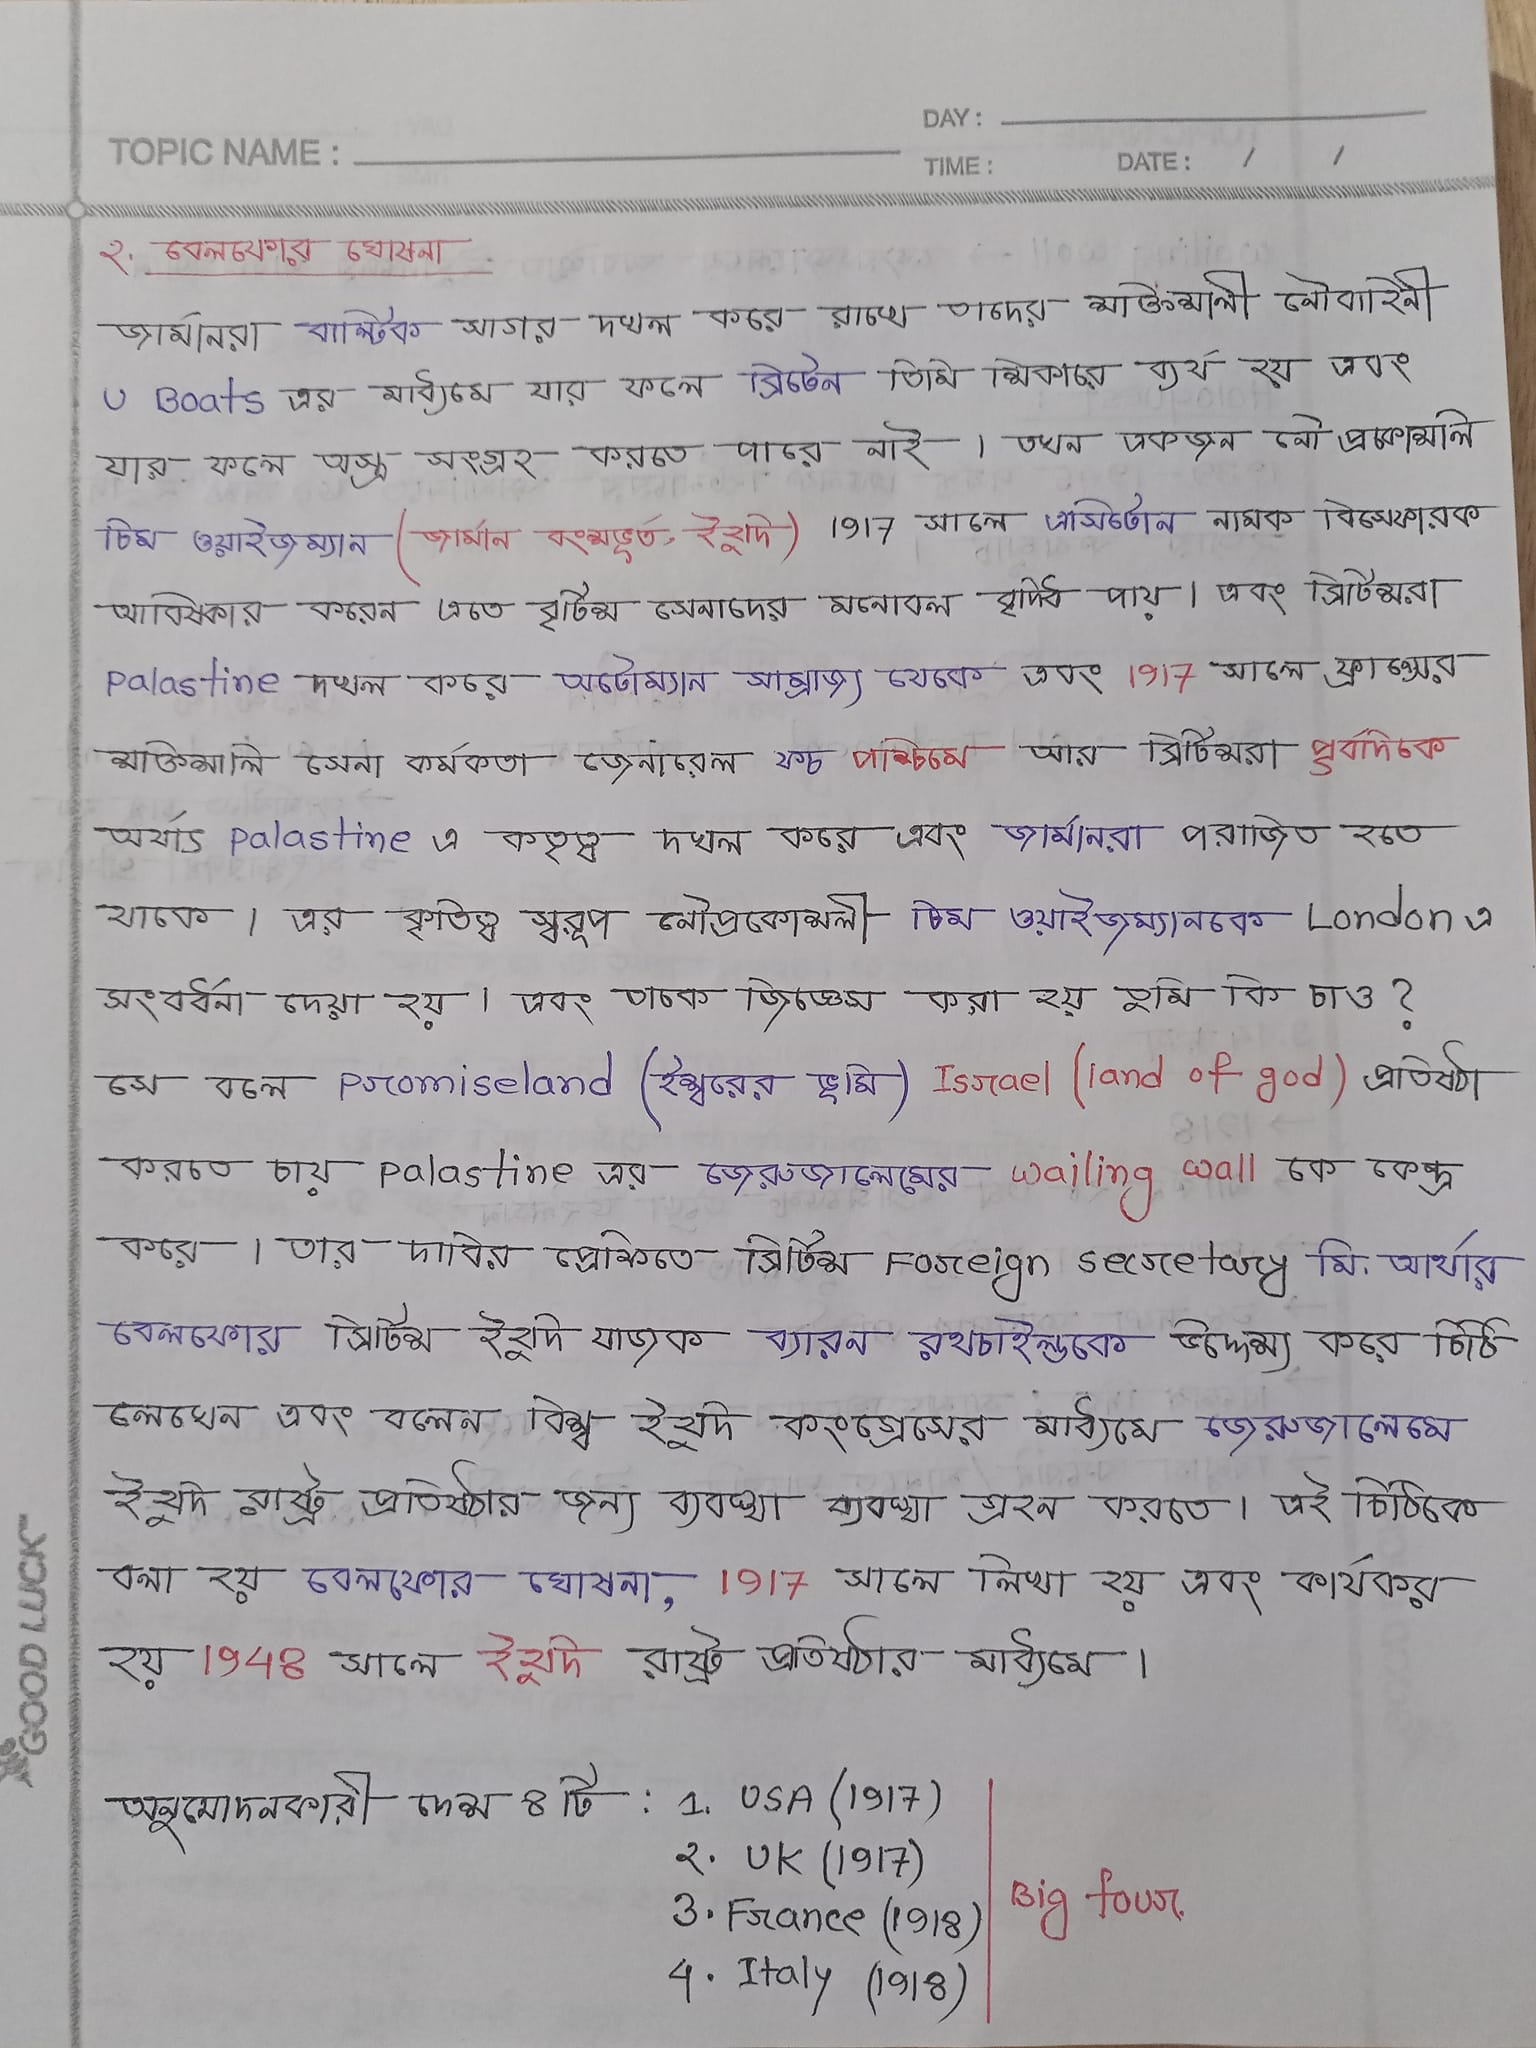 DAY :
TOPIC NAME :
TIME :
DATE : / /
২. বেলফোর ঘোষনা
জার্মানরা বাল্টিক সাগর দখল করে রাখে তাদের শক্তিশালী নৌবাহিনী
U Boats এর মাধ্যমে যার ফলে ব্রিটেন তিমি শিকারে ব্যর্থ হয় এবং
যার ফলে অস্ত্র সংগ্রহ করতে পারে নাই । তখন একজন নৌ প্রকোশলি
চিম ওয়াইজম্যান (জার্মান বংশদ্ভূত, ইহুদি) 1917 সালে এসিটোন নামক বিসেফারক
আবিষ্কার করেন এতে বৃটিশ সেনাদের মনোবল বৃদ্ধি পায় । এবং ব্রিটিশরা
Palastine দখল করে অটোম্যান সাম্রাজ্য থেকে এবং 1917 সালে ফ্রান্সের
শক্তিশালি সেনা কর্মকতা জেনারেল ফচ পশ্চিমে আর ব্রিটিশরা পূর্বদিকে
অর্থাৎ Palastine এ কতৃত্ব দখল করে এবং জার্মানরা পরাজিত হতে
থাকে । এর কৃতিত্ব স্বরূপ নৌপ্রকোশলী চিম ওয়াইজম্যানকে London এ
সংবর্ধনা দেয়া হয় । এবং তাকে জিজ্ঞেস করা হয় তুমি কি চাও ?
সে বলে Promiseland (ইশ্বরের ভূমি) Israel (land of god) প্রতিষ্ঠা
করতে চায় Palastine এর জেরুজালেমের wailing wall কে কেন্দ্র
করে । তার দাবির প্রেক্ষিতে ব্রিটিশ Foreign secretary মি. আর্থার
বেলফোর ব্রিটিশ ইহুদি যাজক ব্যারন রথচাইল্ডকে উদ্দেশ্য করে চিঠি
লেখেন এবং বলেন বিশ্ব ইহুদি কংগ্রেসের মাধ্যমে জেরুজালেমে
ইহুদি রাষ্ট্র প্রতিষ্ঠার জন্য ব্যবস্থা ব্যবস্থা গ্রহন করতে । এই চিঠিকে
বলা হয় বেলফোর ঘোষনা, 1917 সালে লিখা হয় এবং কার্যকর
হয় 1948 সালে ইহুদি রাষ্ট্র প্রতিষ্ঠার মাধ্যমে ।
অনুমোদনকারী দেশ ৪ টি : 1. USA (1917)
২. UK (1917)
3. France (1918)
4. Italy (1918)
Big four.
GOOD LUCK™